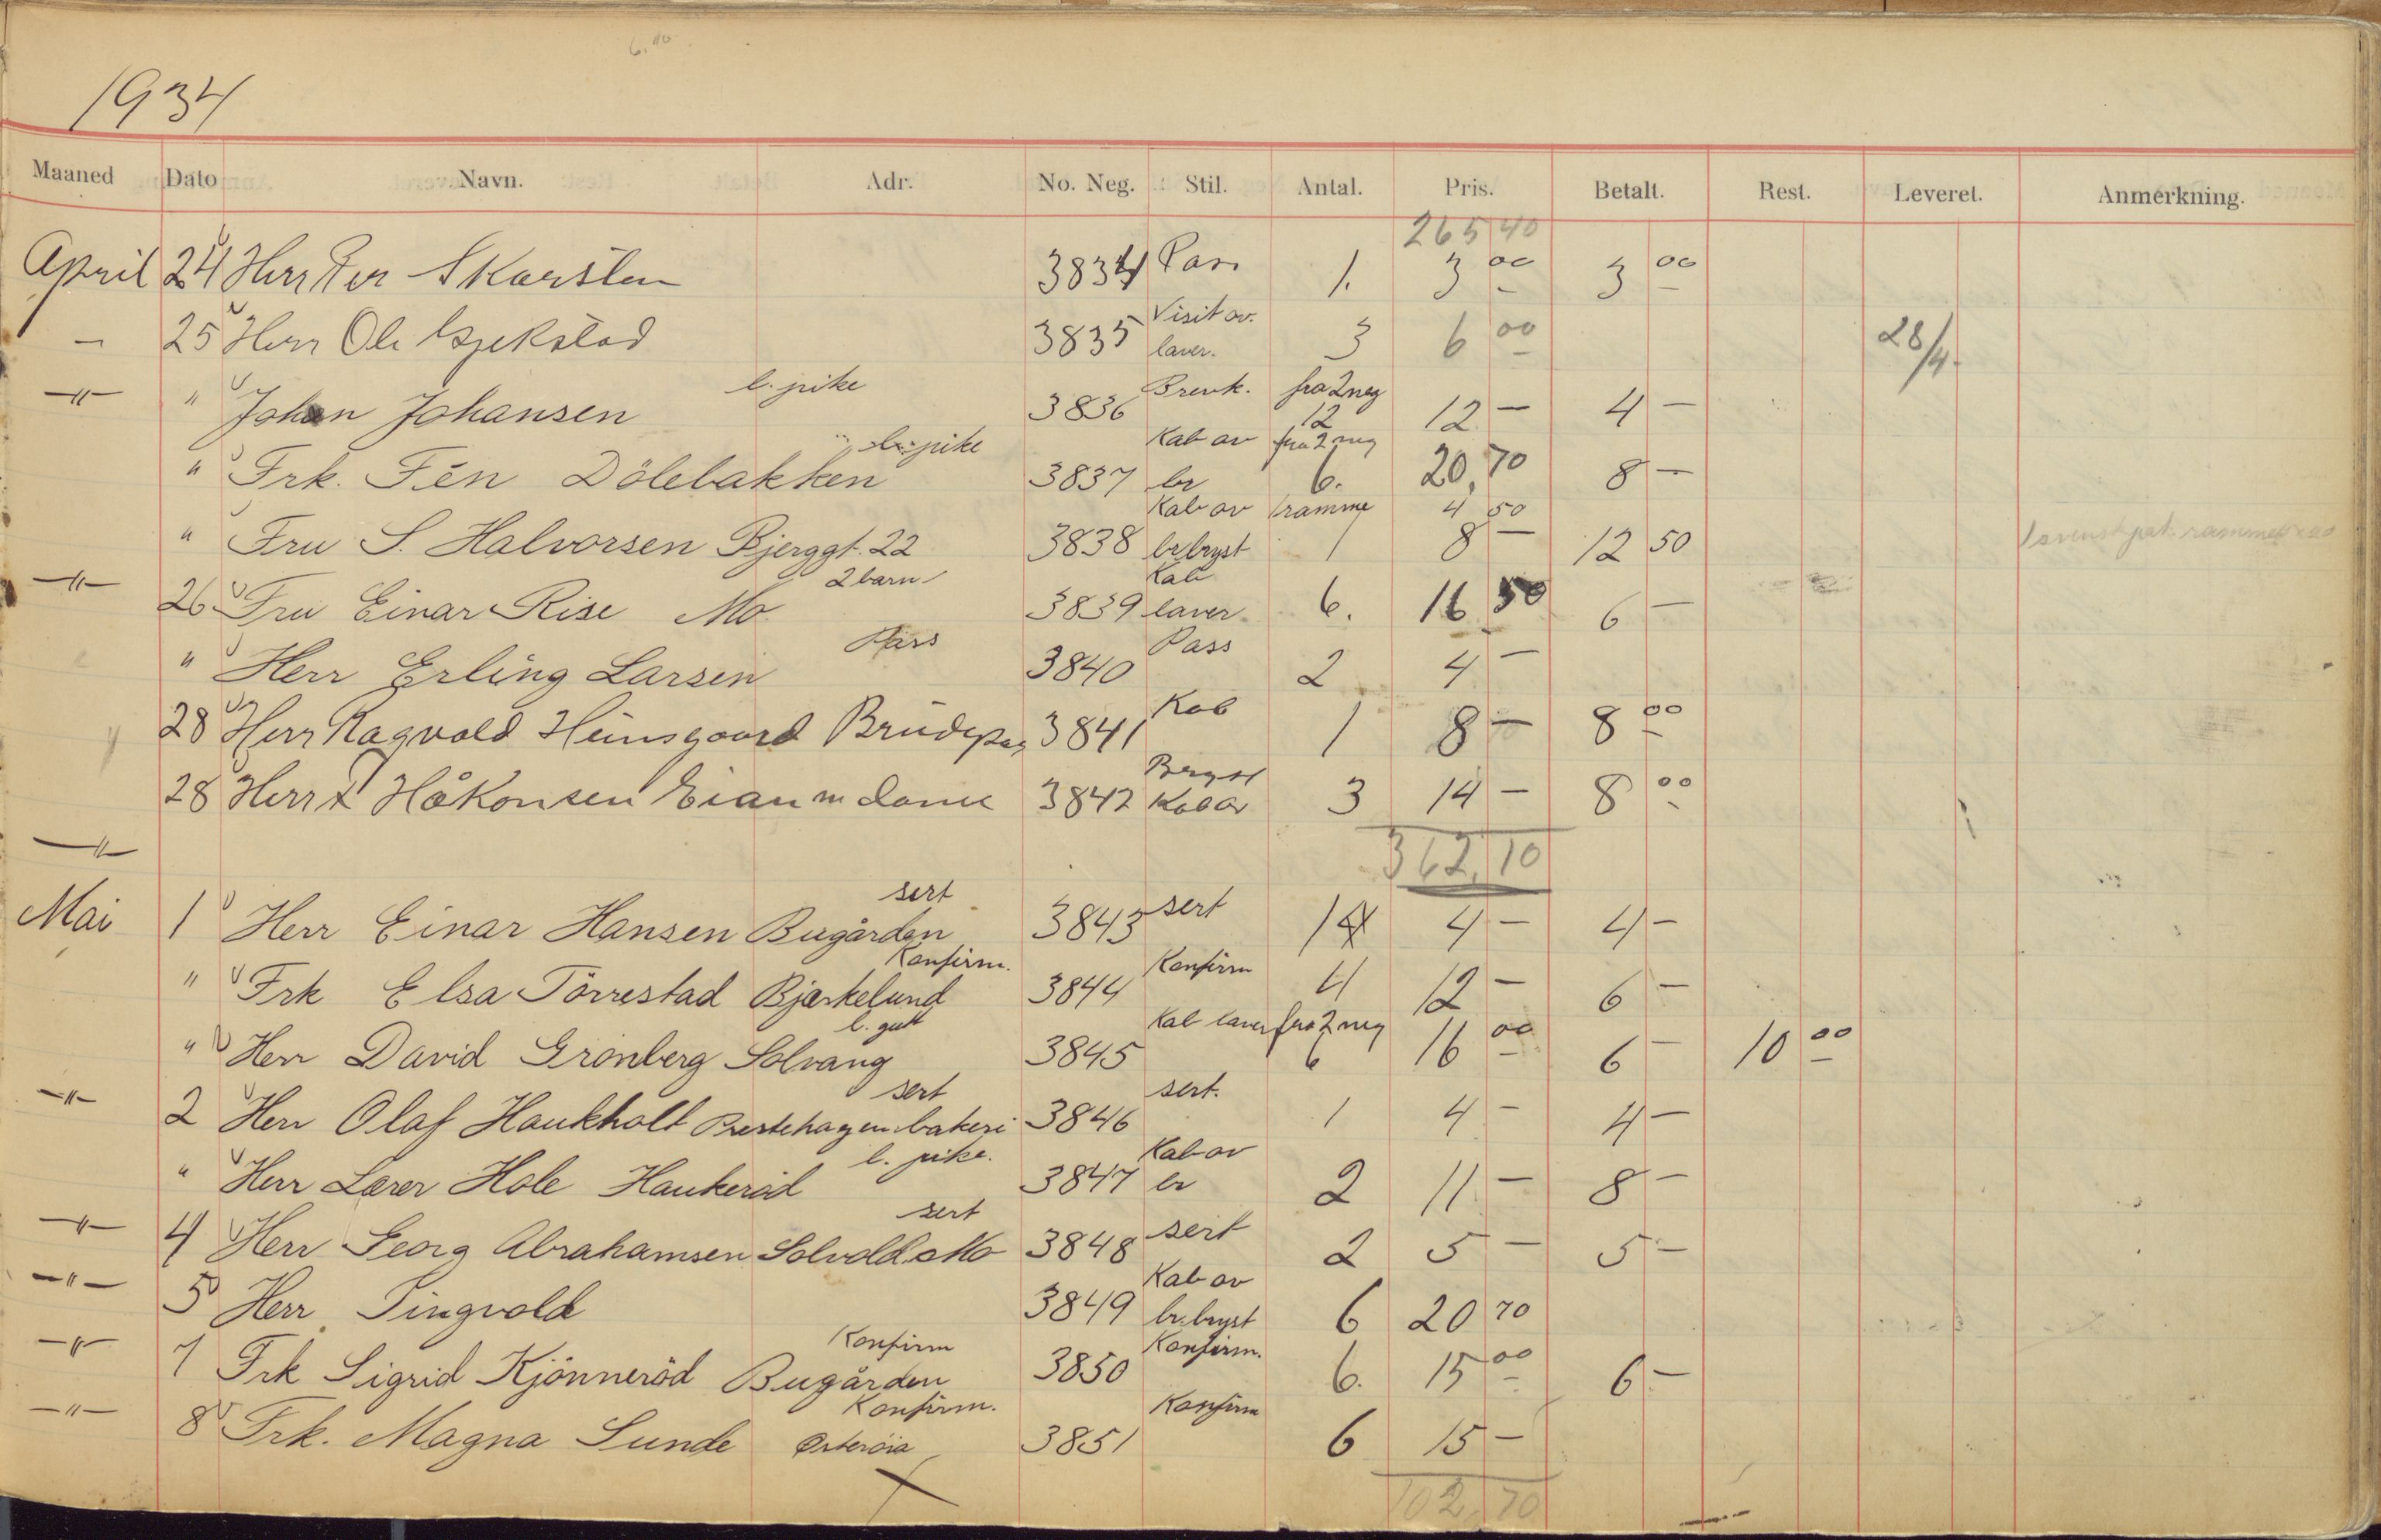 6.
1934
Maaned Dato Navn. Adr. No. Neg. Stil. Antal. Pris. Betalt. Rest. Leveret. Anmerkning.
265 40
April 24 Herr Per Skarsten 3834 Pass 1. 3 00 3 00
Visit av.
— 25 Herr Ole Gjekstad 3835 laver. 3 6 00 28/4.
l. pike Brevk. fra 2 neg
—"— " Johan Johansen 3836 12 12 — 4 —
pike Kab av fra 2 neg
" Frk. Fén Dölebakken 3837 br 6. 20,70 8 —
Kab av 1 ramme 4 50
" Fru S. Halvorsen Bjerggt. 22 3838 br. bryst 1 8 — 12 50
—"— 2 barn Kab
26 Fru Einar Rise Mo 3839 laver. 6. 16 50 6 —
Pass Pass
" Herr Erling Larsen 3840 2 4 —
Kab
28 Herr Ragvald Heimsgaard Brudepar 3841 1 8 — 8 00
28 Herr Håkonsen Eian m dame 3842 Kab av 3 14 — 8 00
—"— 362,10
sert sert
Mai 1 Herr Einar Hansen Bugården 3843 1 4 — 4 —
Konfirm. Konfirm
" Frk Elsa Törrestad Bjerkelund 3844 4 12 — 6 —
l. gutt Kab laver fra 2 neg
" Herr David Gronberg Solvang 3845 6 16 00 6 — 10 00
—"— sert sert.
2 Herr Olaf Haukholt Prestehagen bakeri 3846 1 4 — 4 —
l. pike. Kab av
" Herr Lærer Hole Haukeröd 3847 br 2 11 — 8 —
sert
—"— 4 Herr Georg Abrahamsen Solvold Mo 3848 sert 2 5 — 5 —
Kab av
—"— 5 Herr Tingvold 3849 br. bryst 6 20 70
Konfirm Konfirm.
—"— 7 Frk Sigrid Kjönneröd Bugården 3850 6. 15 00 6 —
Konfirm. Konfirm
—"— 8 Frk. Magna Sunde Østeröia 3851 6 15 —
102,70